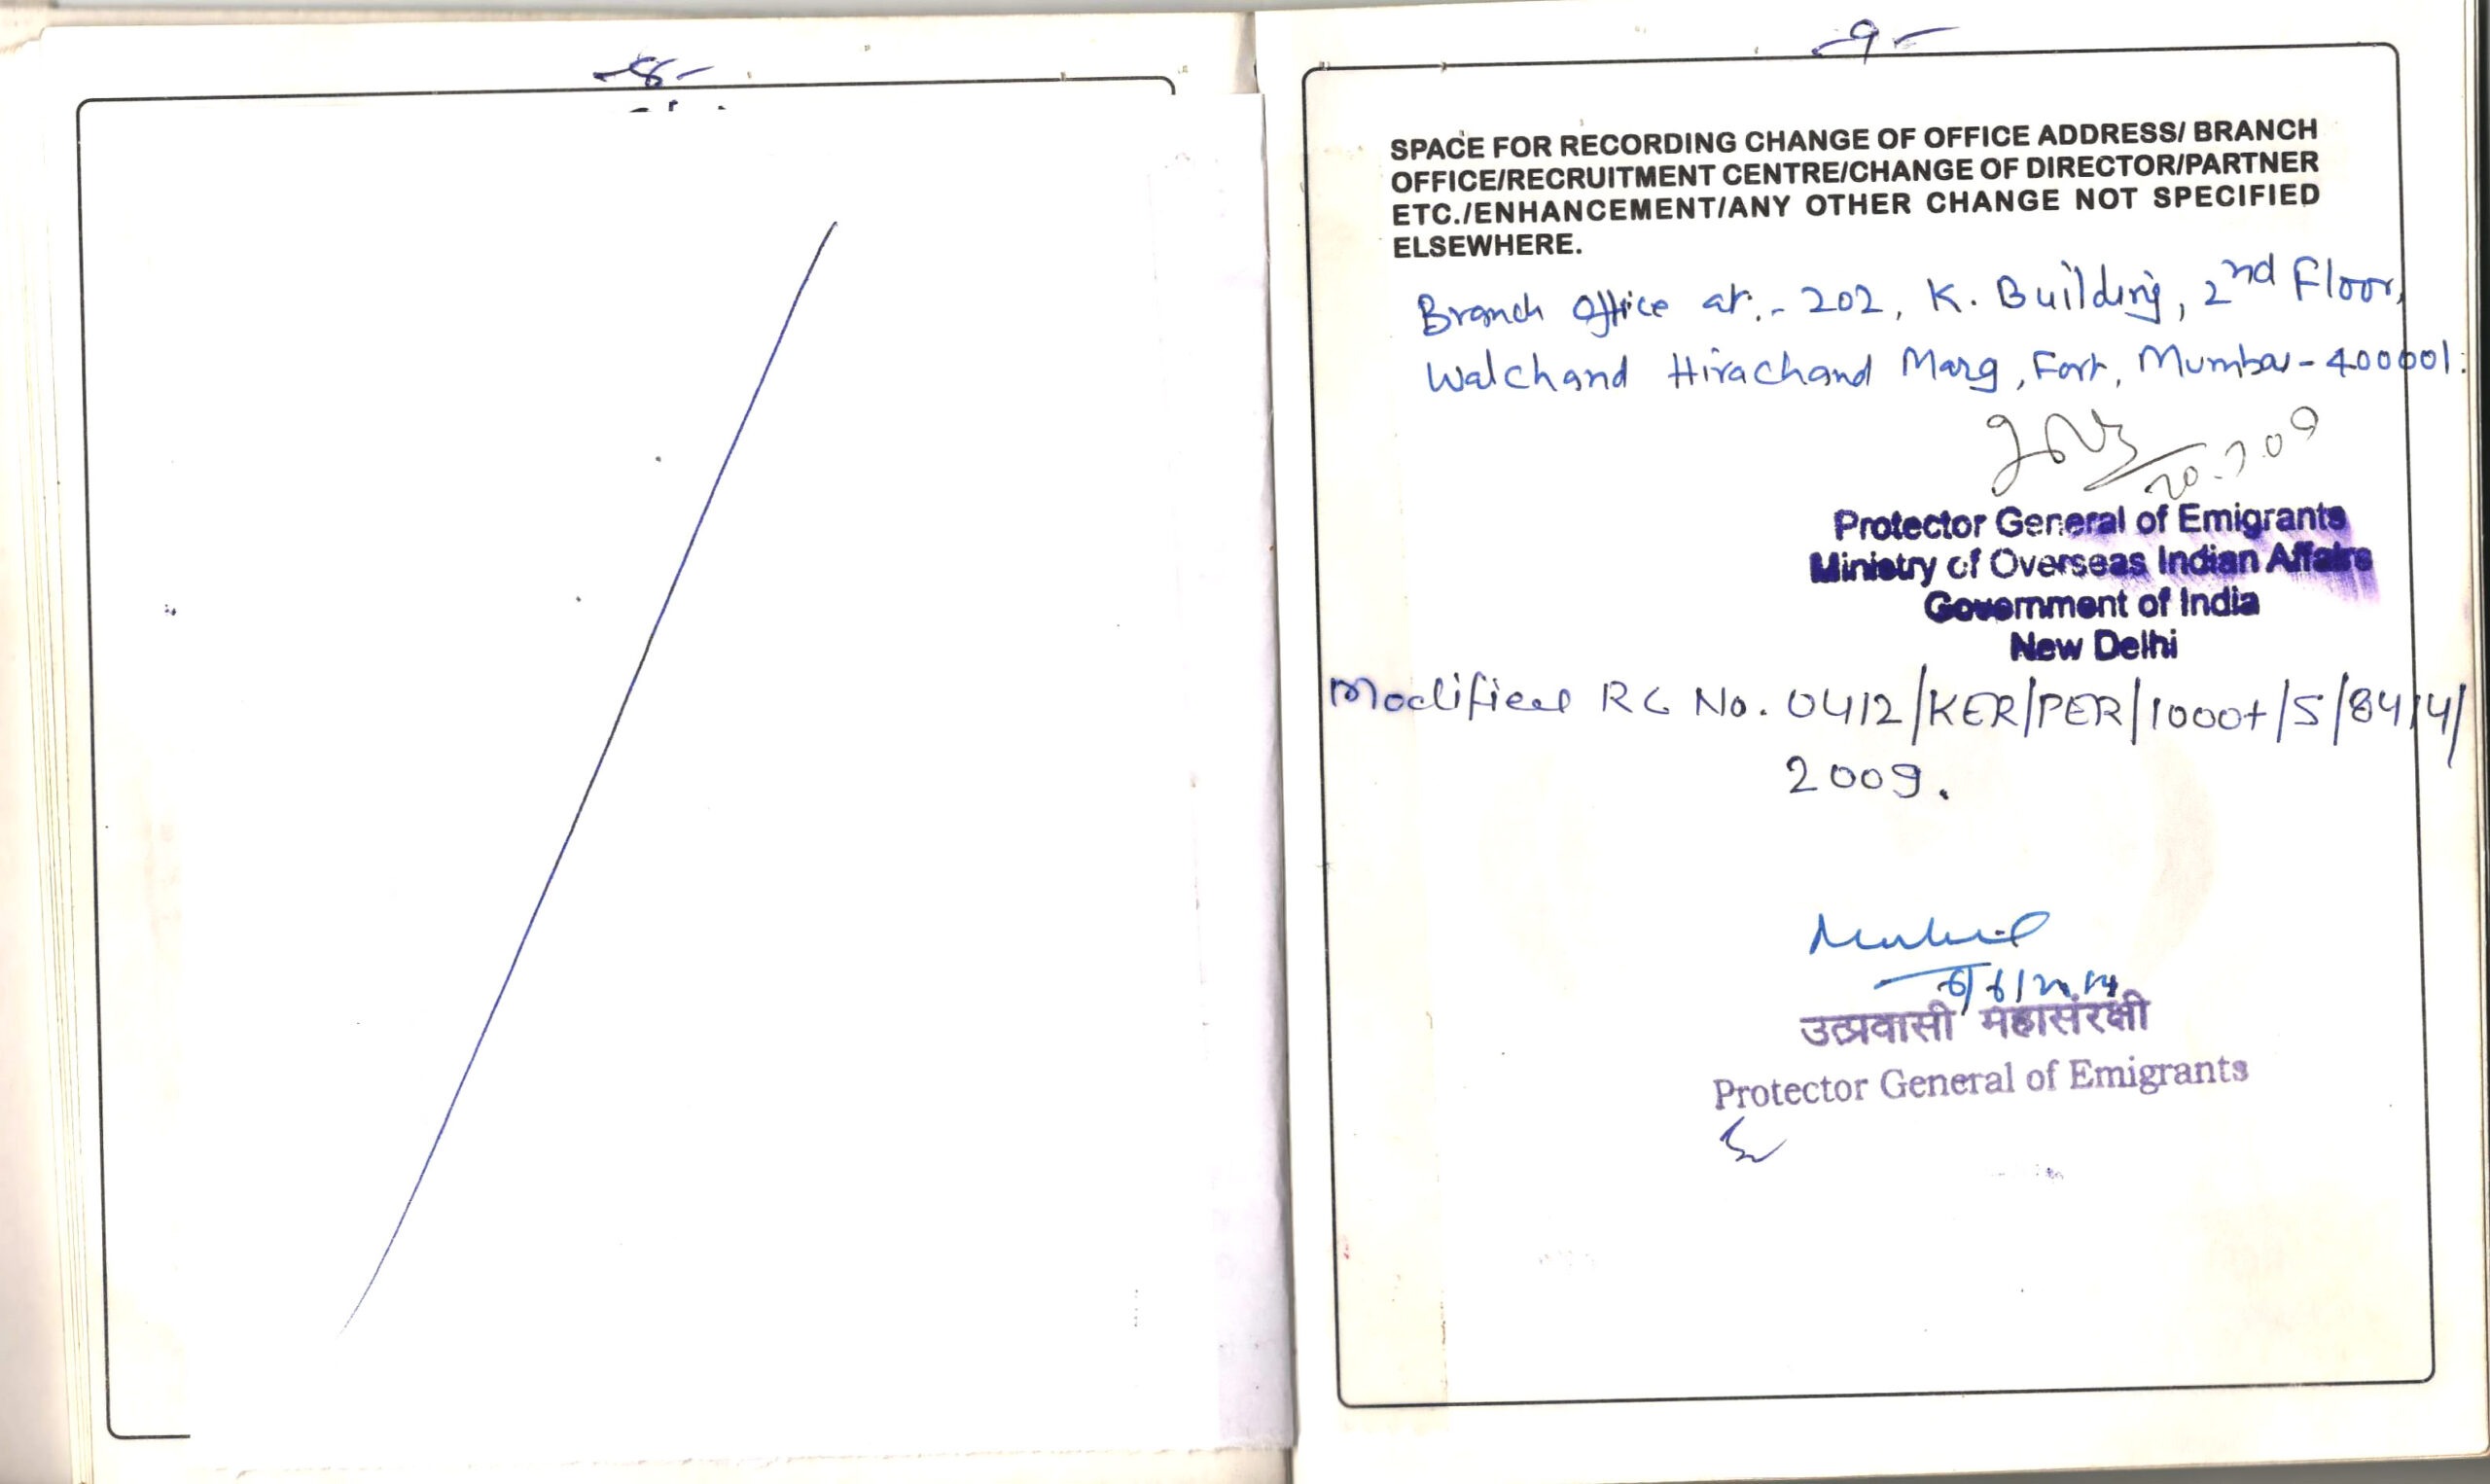 -8-
-9-
SPACE FOR RECORDING CHANGE OF OFFICE ADDRESS/ BRANCH
OFFICE/RECRUITMENT CENTRE/CHANGE OF DIRECTOR/PARTNER
ETC./ENHANCEMENT/ANY OTHER CHANGE NOT SPECIFIED
ELSEWHERE.
Branch Office at.- 202, K. Building, 2nd Floor,
Walchand Hirachand Marg, Fort, Mumbai-400001.
20.7.09
Protector General of Emigrants
Ministry of Overseas Indian Affairs
Government of India
New Delhi
Modified RC No. 0412/KER/PER/1000+/5/8414/
2009.
6/6/2014
उत्प्रवासी महासंरक्षी
Protector General of Emigrants